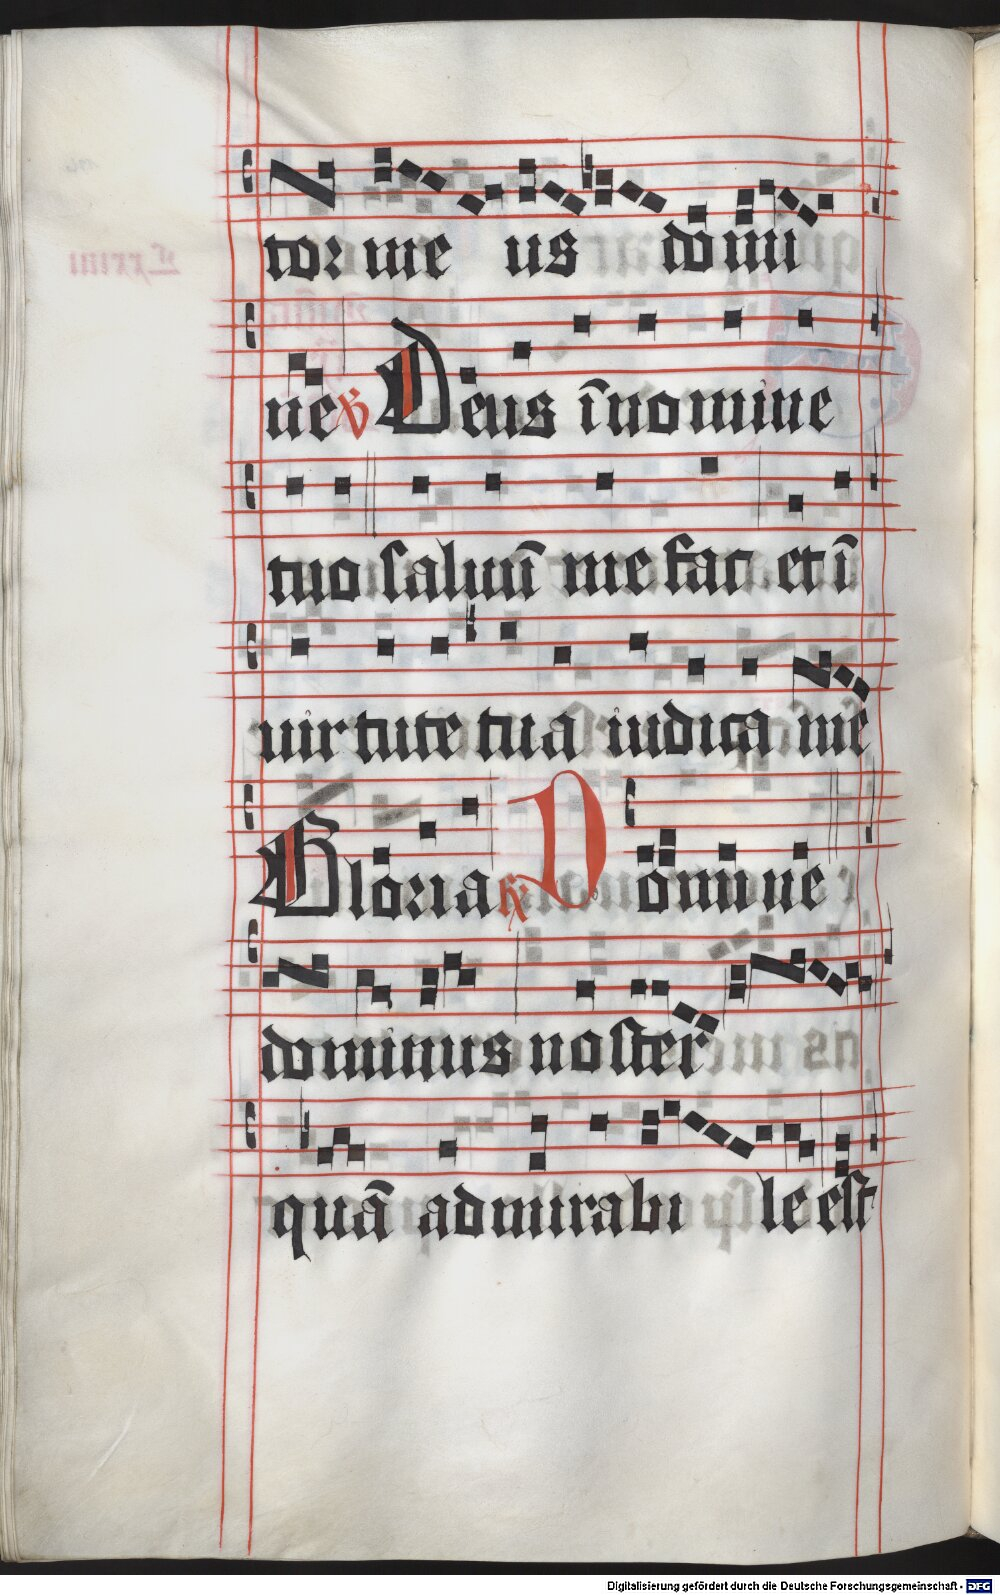 tor me us domi
ne ℣ Deus ī nomine
tuo saluū me fac et ī
uirtute tua iudica me
Gloria ℟ Domine
dominus noster
quā admirabi le est
Digitalisierung gefördert durch die Deutsche Forschungsgemeinschaft - DFG